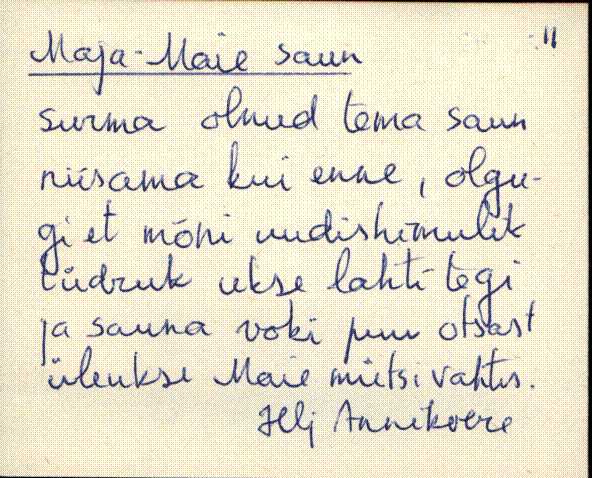 Maja-Maie saun
surma olnud tema saun
niisama kui enne, olgu-
gi et mõni uudishimulik
tüdruk ukse lahti tegi
ja sauna voki puu otsast
üleukse Maie mütsi vahtis.
Annikvere